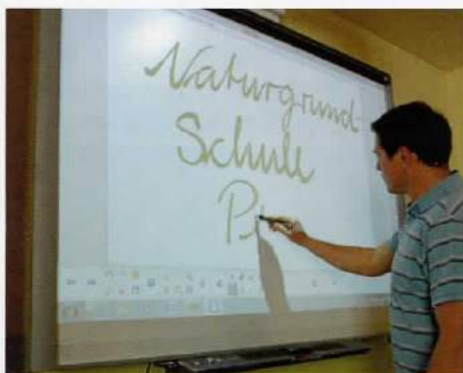 Naturgrund-
Schule
P